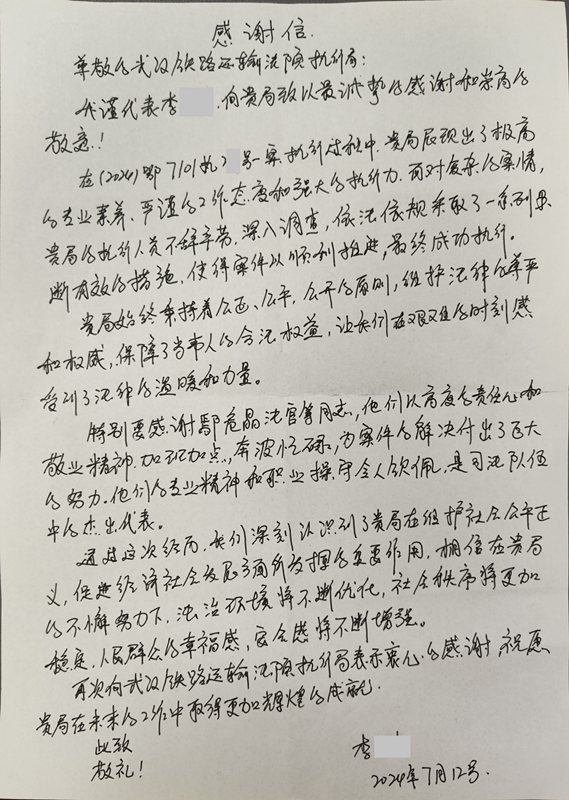 感谢信.
尊敬的武汉铁路运输法院执行局:
我谨代表李 ,向贵局致以最诚挚的感谢和崇高的
敬意!
在(2024)鄂7101执2 号一案执行过程中,贵局展现出了极高
的专业素养、严谨的工作态度和强大的执行力.面对复杂的案情,
贵局的执行人员不辞辛劳,深入调查,依法依规采取了一系列果
断有效的措施,使得案件以顺利推进,最终成功执行。
贵局始终秉持着公正、公平,公开的原则,维护法律的尊严
和权威,保障了当事人的合法权益,让我们在艰难的时刻感
受到了法律的温暖和力量。
特别要感谢鄢危晶法官等同志,他们以高度的责任心和
敬业精神,加班加点,奔波忙碌,为案件的解决付出了巨大
的努力.他们的专业精神和职业操守令人钦佩,是司法队伍
中的杰出代表。
通过这次经历,我们深刻认识到了贵局在维护社会公平正
义,促进经济社会发展方面所发挥的重要作用.相信在贵局
的不懈努力下,法治环境将不断优化,社会秩序将更加
稳定,人民群众的幸福感,安全感将不断增强。
再次向武汉铁路运输法院执行局表示衷心的感谢,祝愿
贵局在未来的工作中取得更加辉煌的成就.
此致
敬礼!
李
2024年7月12号.